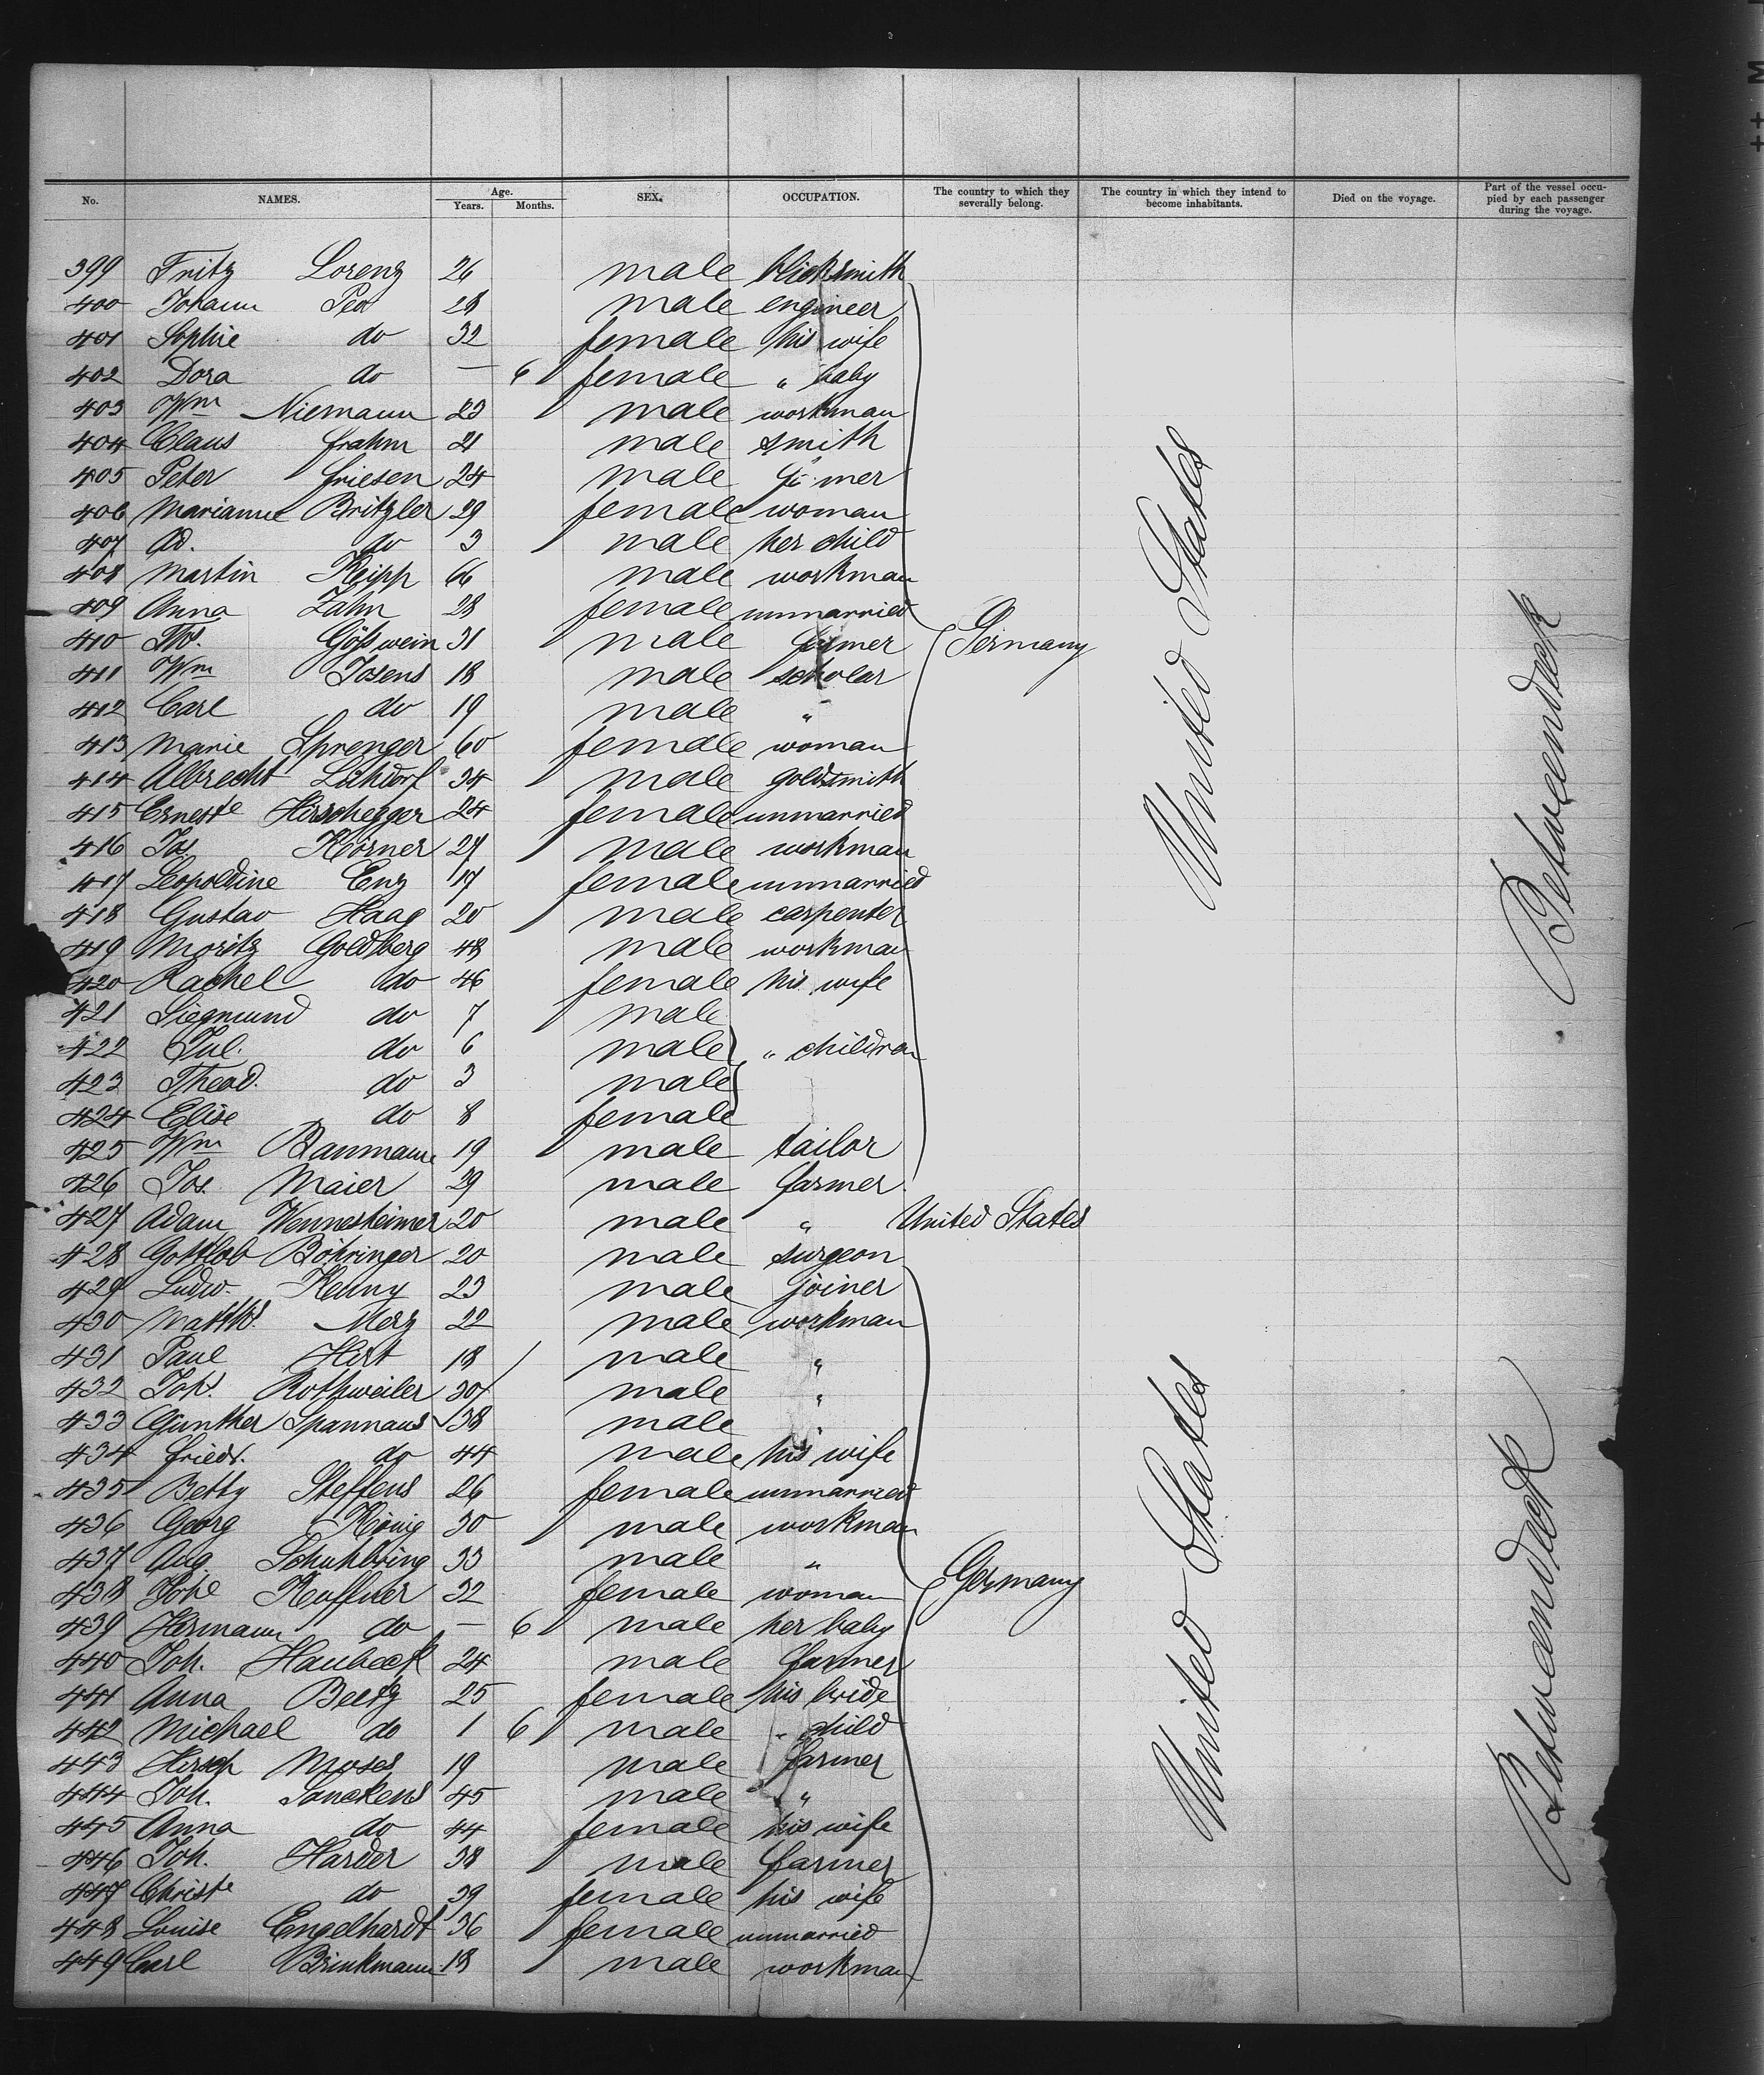 No. NAMES. Age. Years. Months. SEX. OCCUPATION. The country to which they severally belong. The country in which they intend to become inhabitants. Died on the voyage. Part of the vessel occupied by each passenger during the voyage.
399 Fritz Lorenz 26 male
400 Johann 28 male engineer
401 Sophie do 32 female his wife
402 Dora do — 6 female " baby
403 Wm Niemann 23 male workman
404 Claus Frahm 21 male smith
405 Peter Friesen 24 male
406 Marianne Britzler 29 female woman
407 Ad. do 3 male her child
408 Martin Reipp 66 male workman
409 Anna Zahn 28 female unmarried
410 Gößwein 31 male farmer Germany
411 Wm Josens 18 male scholar
412 Carl do 19 male "
413 Marie Sprenger 60 female woman
414 Albrecht 34 male goldsmith
415 Ernestte Hirschegger 24 female unmarried
416 Jos. Körner 27 male workman
417 Leopoldine Enz 17 female unmarried
418 Gustav Haag 20 male carpenter
419 Moritz Goldberg 48 male workman
420 Rachel do 46 female his wife
421 Siegmund do 7 male
422 Jul. do 6 male " children
423 Theod. do 3 male
424 Elise do 8 female
425 Wm Baumann 19 male tailor
426 Jos. Maier 29 male farmer
427 Adam Wennesheimer 20 male " United States
428 Gottlob Böhringer 20 male surgeon
429 Ludw. Kenny 23 male joiner
430 Matths. Merz 22 male workman
431 Paul Hirt 18 male "
432 Johs. Rothweiler 30 male "
433 Günther Spannaus 38 male
434 Friedr. do 44 male his wife
435 Betty Steffens 26 female unmarried
436 Georg König 30 male workman
437 Aug. Schuhbring 33 male "
438 Johe Keuffner 32 female woman Germany
439 Hermann do — 6 male her baby
440 Joh. Haubeck 24 male farmer
441 Anna Beetz 25 female his bride
442 Michael do 1 6 male " child
443 Hirsch Moses 19 male farmer
444 Joh. Sanckens 45 male "
445 Anna do 44 female his wife
446 Joh. Harder 38 male farmer
447 Christe do 39 female his wife
448 Louise Engelhardt 36 female unmarried
449 Carl Brinkmann 18 male workman
United States
United States
Betweendeck
Betweendeck